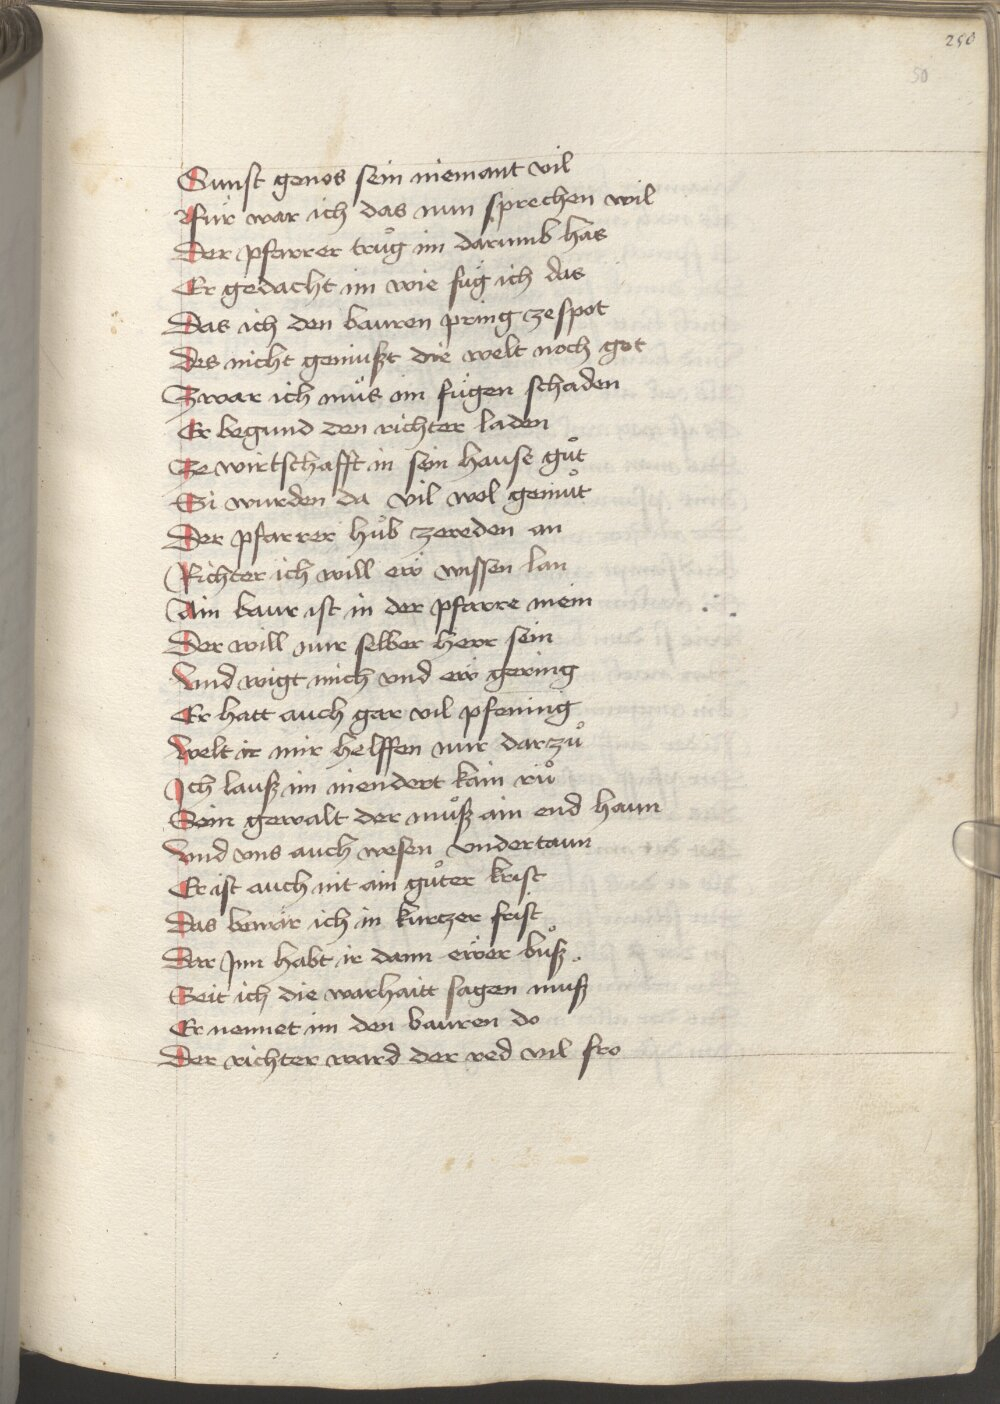 250
50
Sunst genos sein niemant vil
Für war ich das nun sprechen wil
Der pfarrer trůg im darumb has
Er gedacht im wie füg ich das
Das ich den bauren pring ze spot
Des nicht geniußt die welt noch got
Zwar ich můs im fügen schaden
Er begund den richter laden
Ze wirtschafft in sein hause gůt
Si wurden da vil wol gemůt
Der pfarrer hůb zereden an
Richter ich will eẅ wissen lan
Ain baur ist in der pfarre mein
Der will nur selber herr sein
Vnd wigt mich vnd eẅ gering
Er hatt auch gar vil pfening
Welt ir mir helffen nur darzů
Ich lauß im niendert kain rů
Sein gewalt der můß ain end haun
Vnd vns auch wesen vndertaun
Er ist auch nit ain gůter krist
Das bewär ich in kurtzer frist
Dar Jnn habt ir dann eẅer bůß
Seit ich die warhaitt sagen muß
Er nennet im den bauren do
Der richter ward der red vil fro